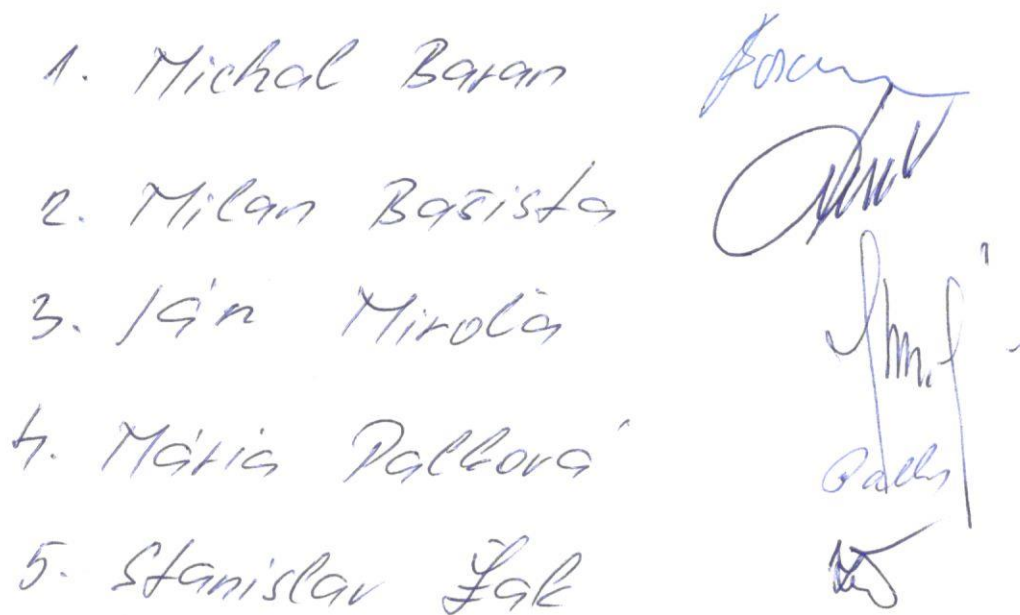 1. Michal Baran
2. Milan Bašista
3. Ján Miroľa
4. Mária Palková
5. Stanislav Žak